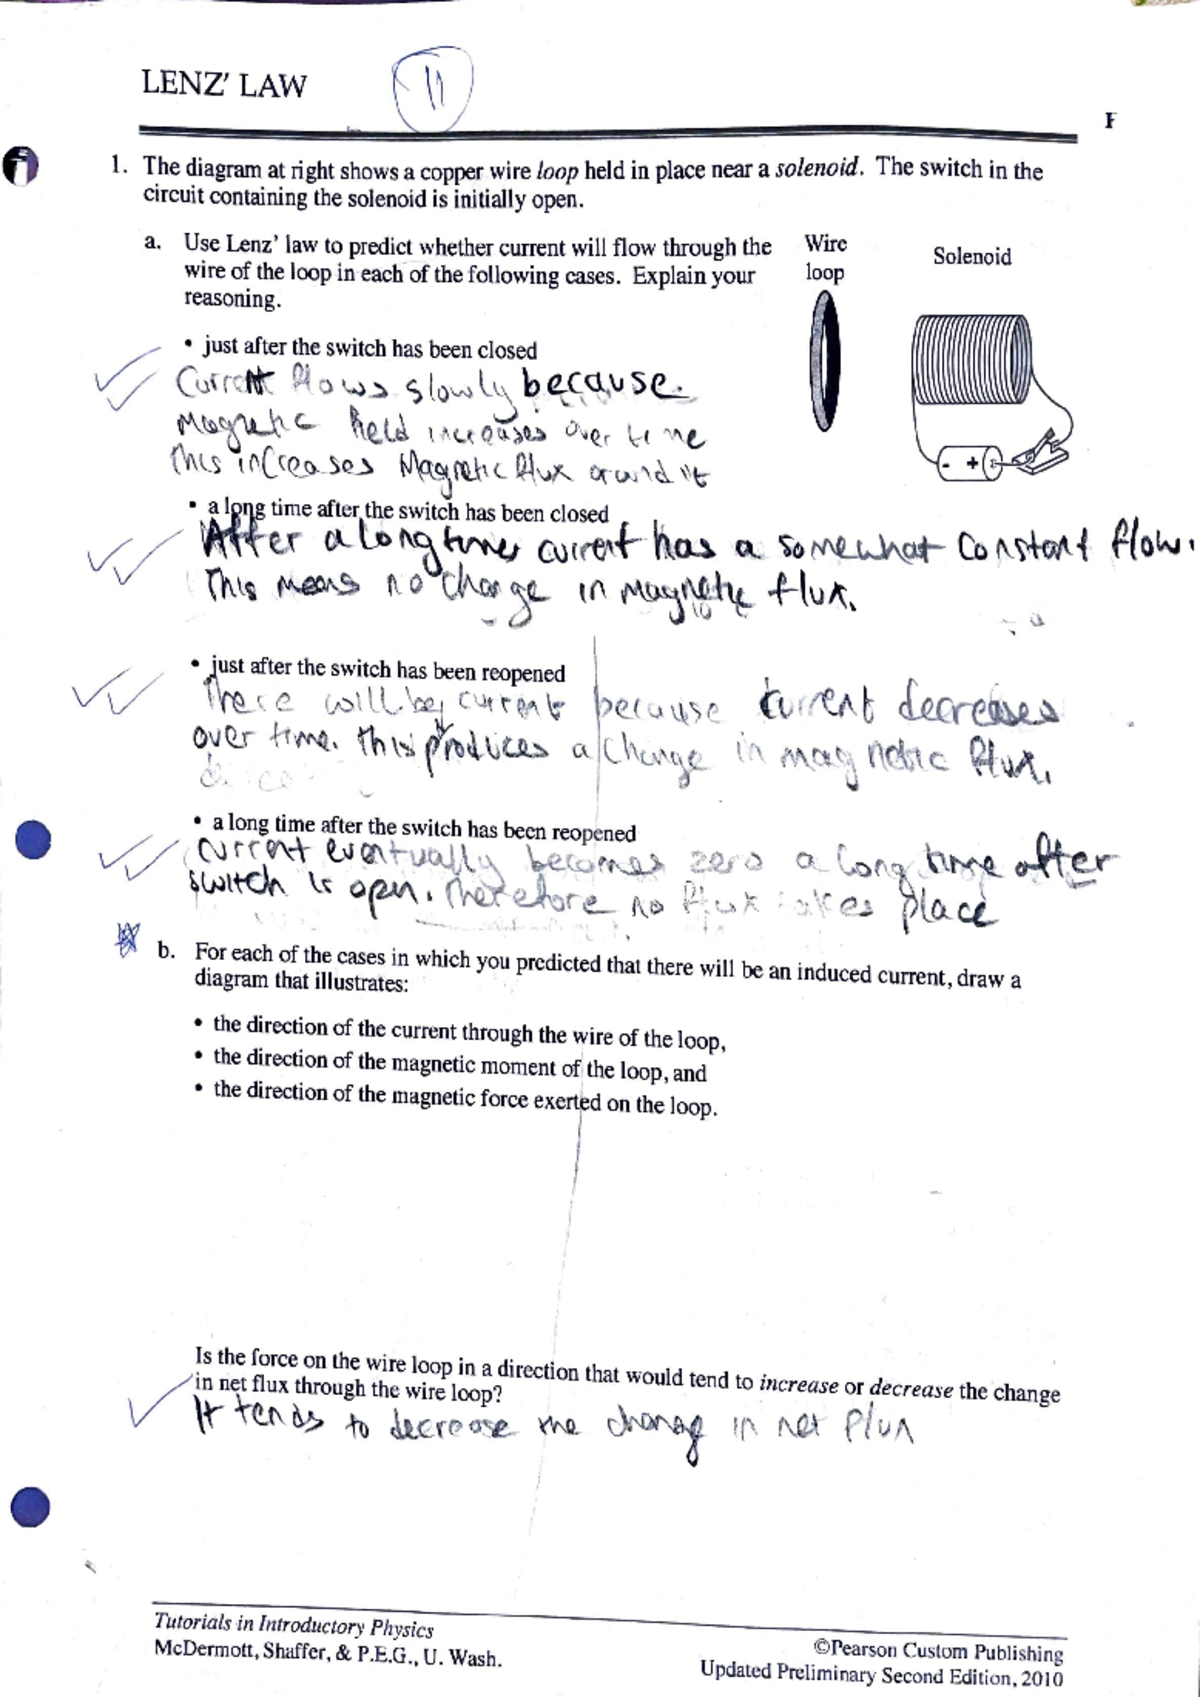 LENZ' LAW
11
1. The diagram at right shows a copper wire loop held in place near a solenoid. The switch in the
circuit containing the solenoid is initially open.
a. Use Lenz' law to predict whether current will flow through the
wire of the loop in each of the following cases. Explain your
reasoning.
Wire
loop
Solenoid
- +
• just after the switch has been closed
Current flows slowly because.
Magnetic field increases over time
This increases Magnetic flux around it
• a long time after the switch has been closed
After a long time current has a somewhat constant flow.
This means no change in magnetic flux.
• just after the switch has been reopened
There will be current because current decreases
over time. This produces a change in magnetic flux.
• a long time after the switch has been reopened
Current eventually becomes zero a long time after
switch is open. Therefore no flux takes place
b. For each of the cases in which you predicted that there will be an induced current, draw a
diagram that illustrates:
• the direction of the current through the wire of the loop,
• the direction of the magnetic moment of the loop, and
• the direction of the magnetic force exerted on the loop.
Is the force on the wire loop in a direction that would tend to increase or decrease the change
in net flux through the wire loop?
It tends to decrease the change in net flux
Tutorials in Introductory Physics
McDermott, Shaffer, & P.E.G., U. Wash.
©Pearson Custom Publishing
Updated Preliminary Second Edition, 2010